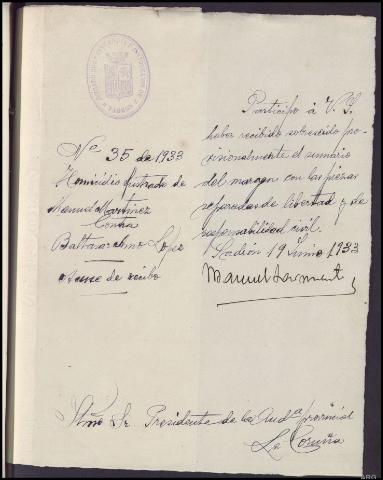 Nº 35 de 1933
Homicidio frustrado de
Manuel Martínez
Contra
Baltasar López
Acuse de recibo
Participo á V. S.
haber recibido sobreseido pro-
visionalmente el sumario
del margen con las piezas
separadas de libertad y de
responsabilidad civil.
19 Junio 1933
Manuel
Ilmo Sr. Presidente de la Audª provincial
La Coruña
ARG